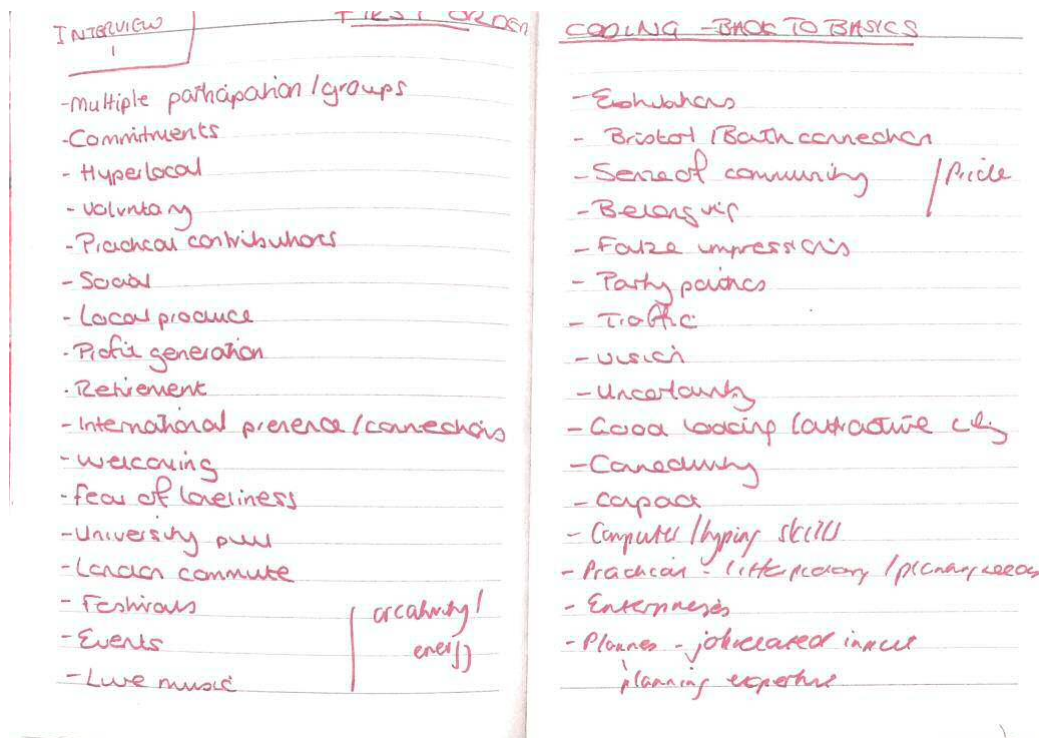 INTERVIEW
1
FIRST ORDER
-Multiple participation/groups
-Commitments
- Hyperlocal
- Voluntary
-Practical contributions
- Social
- Local produce
- Profit generation
- Retirement
- International presence/connections
- Welcoming
- Fear of loneliness
- University pull
- London commute
- Festivals
- Events
- Live music
creativity/
energy
CODING -BACK TO BASICS
- Bristol/Bath connection
- Sense of community
- Belonging
/Pride
- False impressions
- Party politics
- Traffic
- Vision
- Uncertainty
- Good looking/attractive city
- Connectivity
- Compact
- Computer/typing skills
- Practical - litter picking/planting seeds
- Enterprises
- Planner - job related
planning expertise